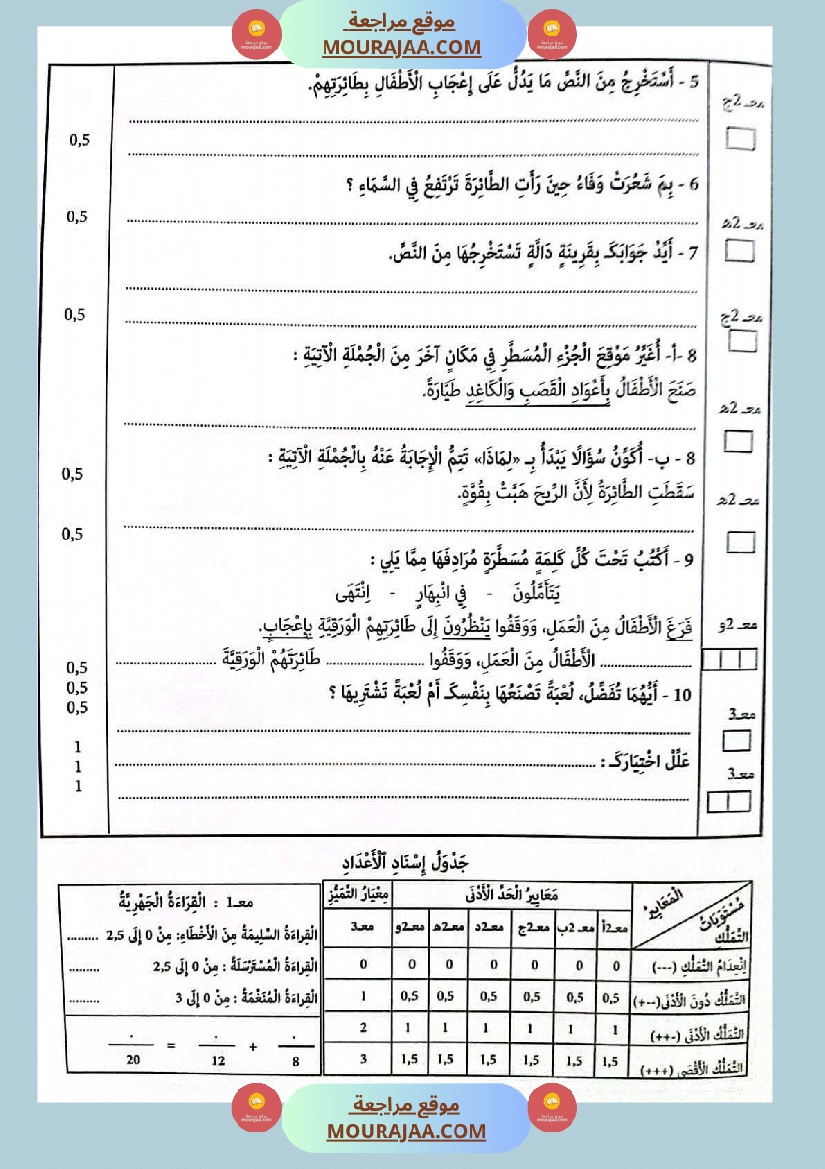 موقع مراجعة
MOURAJAA.COM
5 - أَسْتَخْرِجُ مِنَ النَّصِّ مَا يَدُلُّ عَلَى إِعْجَابِ الْأَطْفَالِ بِطَائِرَتِهِمْ.
معـ2ج
0,5
6 - بِمَ شَعُرَتْ وَفَاءُ حِينَ رَأَتِ الطَّائِرَةَ تَرْتَفِعُ فِي السَّمَاءِ ؟
0,5
معـ2هـ
7 - أَيِّدْ جَوَابَكَـ بِقَرِينَةٍ دَالَّةٍ تَسْتَخْرِجُهَا مِنَ النَّصِّ.
0,5
معـ2ج
8 -أ- أُغَيِّرُ مَوْقِعَ الْجُزْءِ الْمُسَطَّرِ فِي مَكَانٍ آخَرَ مِنَ الْجُمْلَةِ الْآتِيَةِ :
صَنَعَ الْأَطْفَالُ بِأَعْوَادِ الْقَصَبِ وَالْكَاغِدِ طَيَّارَةً.
معـ2هـ
8 - ب- أُكَوِّنُ سُؤَالًا يَبْدَأُ بِـ «لِمَاذَا» تَتِمُّ الْإِجَابَةُ عَنْهُ بِالْجُمْلَةِ الْآتِيَةِ :
0,5
سَقَطَتِ الطَّائِرَةُ لِأَنَّ الرِّيحَ هَبَّتْ بِقُوَّةٍ.
معـ2هـ
0,5
9 - أَكْتُبُ تَحْتَ كُلِّ كَلِمَةٍ مُسَطَّرَةٍ مُرَادِفَهَا مِمَّا يَلِي :
يَتَأَمَّلُونَ - فِي انْبِهَارٍ - اِنْتَهَى
فَرَغَ الْأَطْفَالُ مِنَ الْعَمَلِ، وَوَقَفُوا يَنْظُرُونَ إِلَى طَائِرَتِهِمْ الْوَرَقِيَّةِ بِإِعْجَابٍ.
معـ2و
.................... الْأَطْفَالُ مِنَ الْعَمَلِ، وَوَقَفُوا .................... طَائِرَتَهُمْ الْوَرَقِيَّةَ ....................
0,5
0,5
0,5
10 - أَيُّهُمَا تُفَضِّلُ، لُعْبَةً تَصْنَعُهَا بِنَفْسِكَـ أَمْ لُعْبَةً تَشْتَرِيهَا ؟
معـ3
عَلِّلْ اخْتِيَارَكَـ : ....................
معـ3
1
1
1
جَدْوَلُ إِسْنَادِ الْأَعْدَادِ
الْمَعَايِيرُ
مُسْتَوَيَاتُ التَّمَلُّكِ
مَعَايِيرُ الْحَدِّ الْأَدْنَى
مِعْيَارُ التَّمَيُّزِ
معـ2أ معـ2ب معـ2ج معـ2د معـ2هـ معـ2و معـ3
اِنْعِدَامُ التَّمَلُّكِ (---) 0 0 0 0 0 0 0
التَّمَلُّكُ دُونَ الْأَدْنَى (--+) 0,5 0,5 0,5 0,5 0,5 0,5 1
التَّمَلُّكُ الْأَدْنَى (-++) 1 1 1 1 1 1 2
التَّمَلُّكُ الْأَقْصَى (+++) 1,5 1,5 1,5 1,5 1,5 1,5 3
معـ1 : الْقِرَاءَةُ الْجَهْرِيَّةُ
الْقِرَاءَةُ السَّلِيمَةُ مِنَ الْأَخْطَاءِ: مِنْ 0 إِلَى 2,5 .........
الْقِرَاءَةُ الْمُسْتَرْسَلَةُ : مِنْ 0 إِلَى 2,5 .........
الْقِرَاءَةُ الْمُنَغَّمَةُ : مِنْ 0 إِلَى 3 .........
. = . + .
20 12 8
موقع مراجعة
MOURAJAA.COM